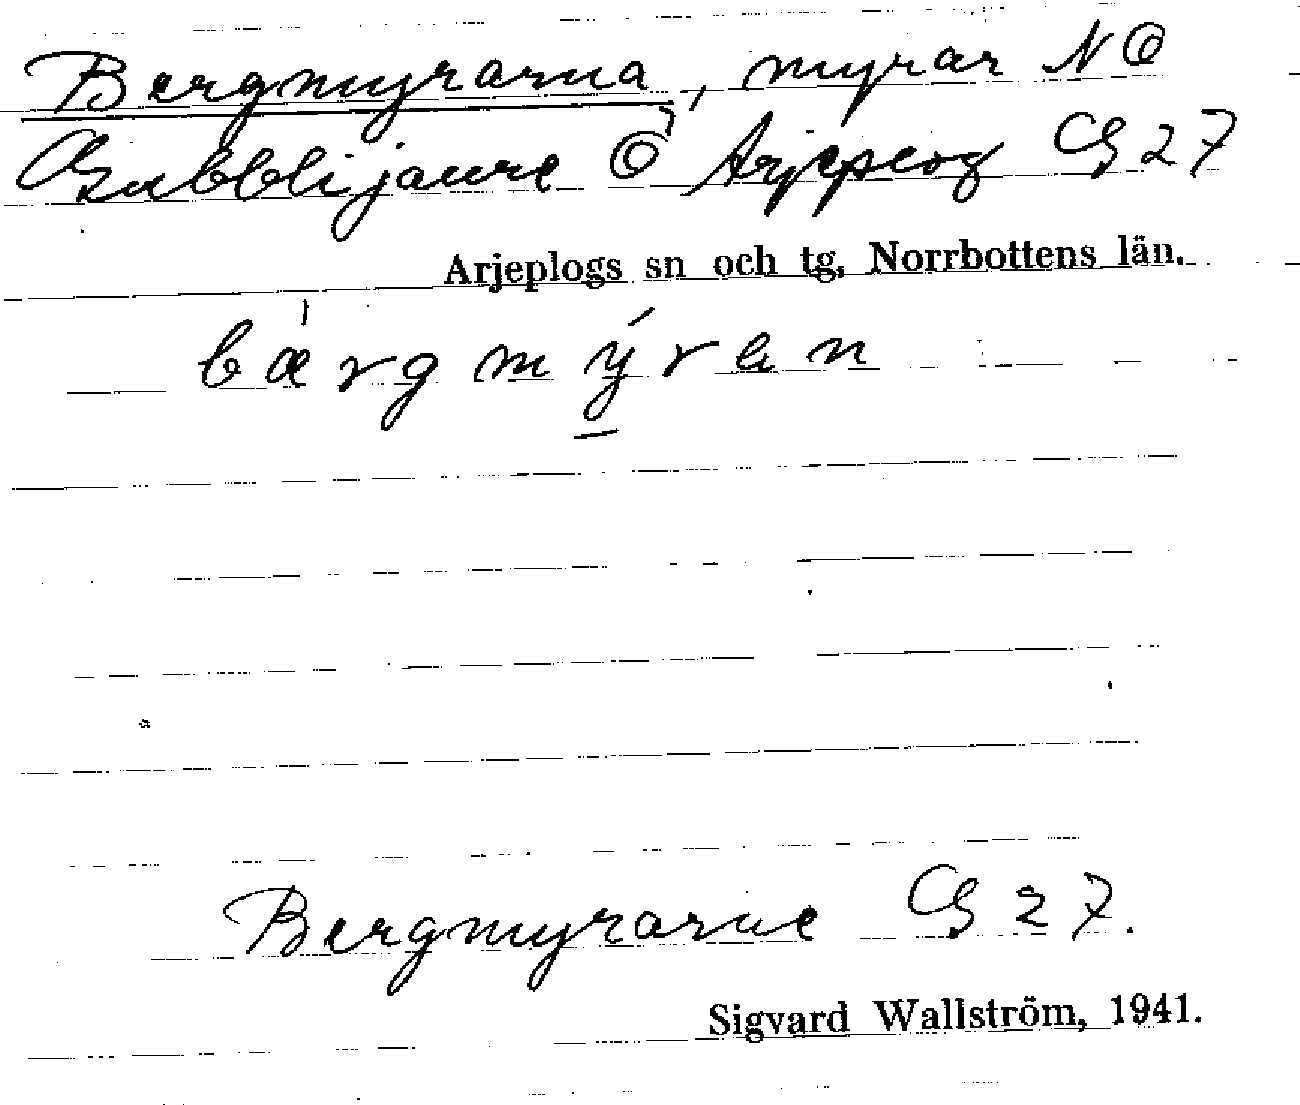 Bergmyrarna, myrar NO
Gubblijaure O Arjeplog G 27
Arjeplogs sn och tg, Norrbottens län.
bærgmýran
Bergmyrarne G 27.
Sigvard Wallström, 1941.